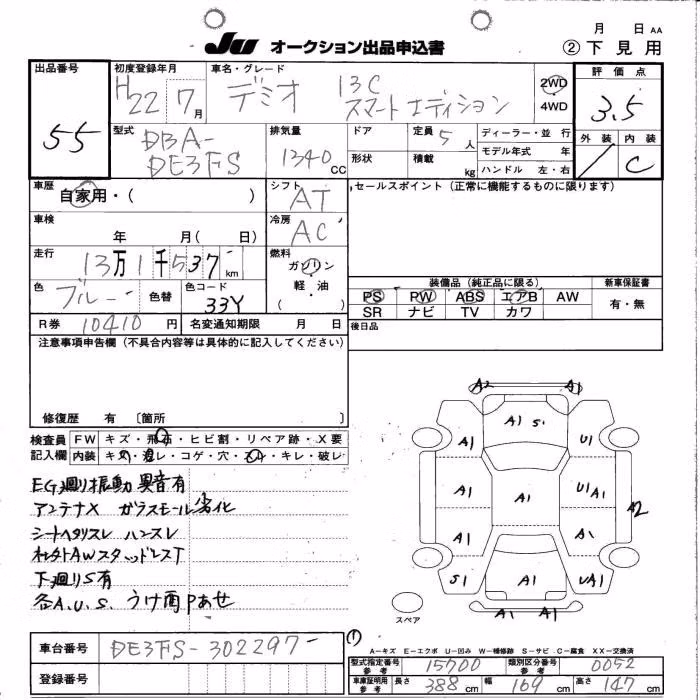 月 日 AA
JU オークション出品申込書
② 下見用
出品番号
55
初度登録年月
H22 7月
車名・グレード
デミオ 13C
スマートエディション
2WD
4WD
評価点
3.5
外装 内装
C
型式
DBA-
DE3FS
排気量
1340 CC
ドア
形状
定員 5 人
積載 kg
ディーラー・並行
モデル年式 年
ハンドル 左・右
車歴
自家用・( )
シフト
AT
セールスポイント(正常に機能するものに限ります)
車検
年 月( 日)
冷房
AC
走行
13万1千537km
燃料
ガソリン
軽・油
( )
色
ブルー
色替
色コード
33Y
装備品(純正品に限る)
PS PW ABS エアB AW
SR ナビ TV カワ
新車保証書
有・無
R券 10410円
名変通知期限 月 日
後日品
注意事項申告欄(不具合内容等は具体的に記入してください)
修復歴 有 〔箇所 〕
検査員
記入欄
FW キズ・飛石・ヒビ割・リペア跡・X要
内装 キズ・汚レ・コゲ・穴・スレ・キレ・破レ
EG廻り振動 異音有
アンテナX ガラスモール劣化
シートヘタリスレ ハンスレ
社外AWスタッドレスT
下廻りS有
各A.U.S. うけ面Pあせ
A2 A1
A1 S
A1 U1
A1 A1 U1 A1
A2
A1 A1
S1 A1 UA1
A1 A1
スペア
A-キズ E-エクボ U-凹み W-補修跡 S-サビ C-腐食 XX-交換済
車台番号
DE3FS-302297-
登録番号
型式指定番号
参考
15700
類別区分番号
参考
0052
車庫証明用
参考
長さ 388 cm 幅 169 cm 高さ 147 cm